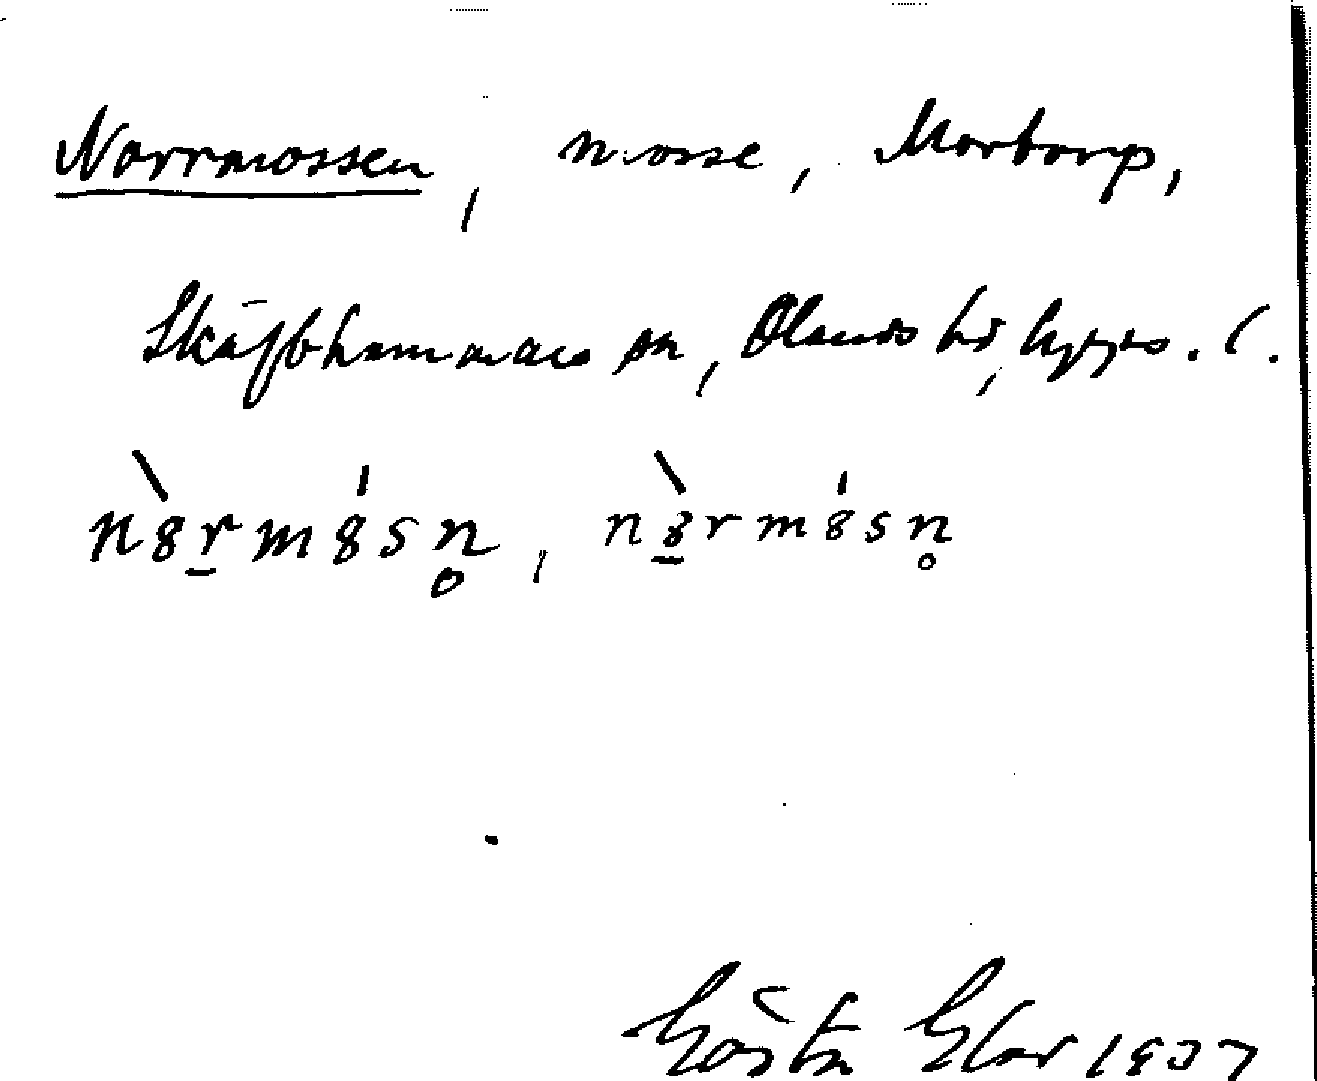 Norrmossen, mosse, Mortorp,
Skäfthammars sn, Olands hd, Upps. l.
n8̀rm8́sn̥, n8̀rm8́sn̥
Gösta Elor 1937